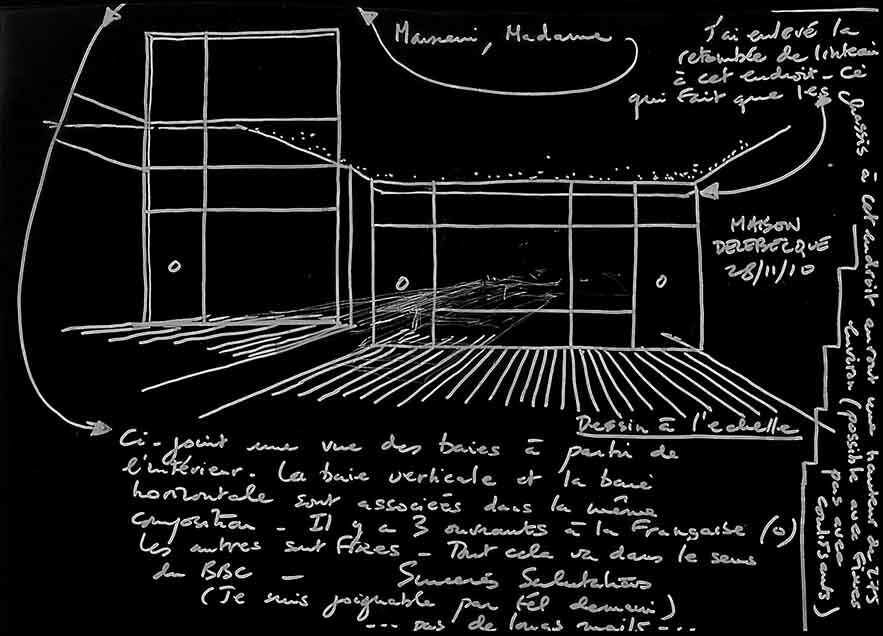 Monsieur, Madame
J'ai enlevé la
retombée de linteau
à cet endroit - Ce
qui fait que les
chassis à cet endroit auront une hauteur de 275
environ (possible avec fixes
pas avec
coulissants)
MAISON
DELEBECQUE
28/11/10
Dessin à l'echelle
Ci-joint une vue des baies à partir de
l'intérieur. La baie verticale et la baie
horizontale sont associées dans la même
composition - Il y a 3 ouvrants à la Française (o)
Les autres sont Fixes - Tout cela va dans le sens
du BBC -
Sincères Salutations
(Je suis joignable par tél demain)
--- pas de longs mails ---